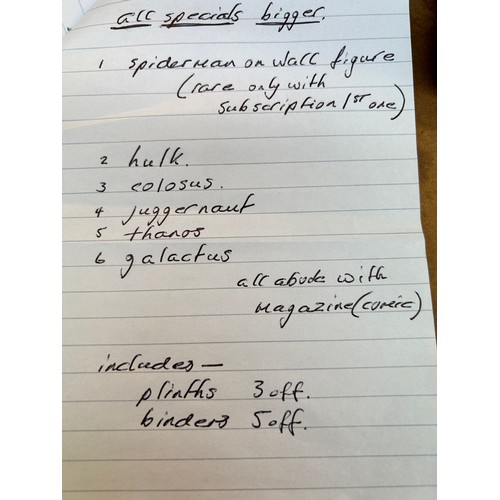 all specials bigger.
1 spiderman on wall figure
(rare only with
subscription 1st one)
2 hulk.
3 colosus.
4 juggernaut
5 thanos
6 galactus
all abode with
magazine (comic)
includes —
plinths 3 off.
binders 5 off.